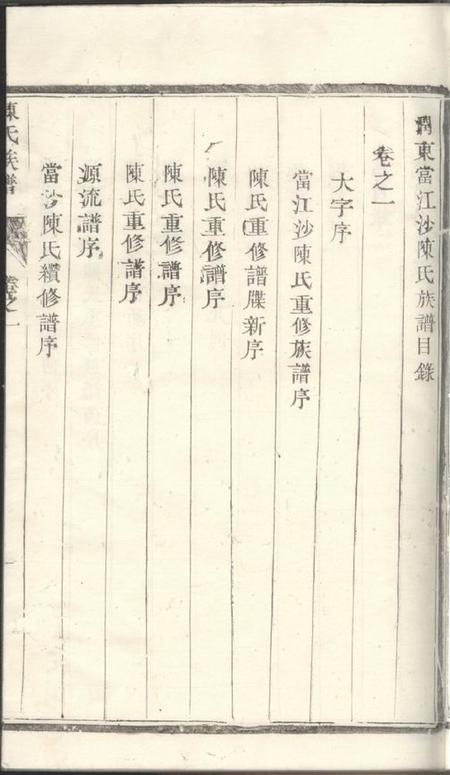 潤東當江沙陳氏族譜目錄
卷之一
大字序
當江沙陳氏重修族譜序
陳氏重修譜牒新序
陳氏重修譜序
陳氏重修譜序
陳氏重修譜序
源流譜序
當沙陳氏續修譜序
陳氏族譜
卷之一